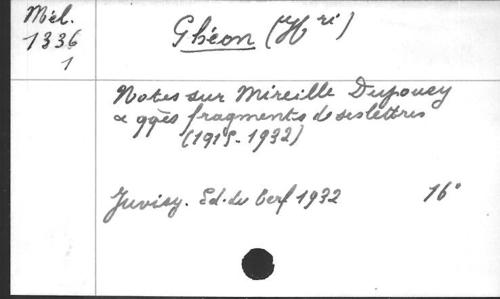 Mél.
1336
1
Ghéon (Hri)
Notes sur Mireille Dupouey
& qqes fragments de ses lettres
(1915-1932)
Juvisy. Ed. du Cerf 1932 16°